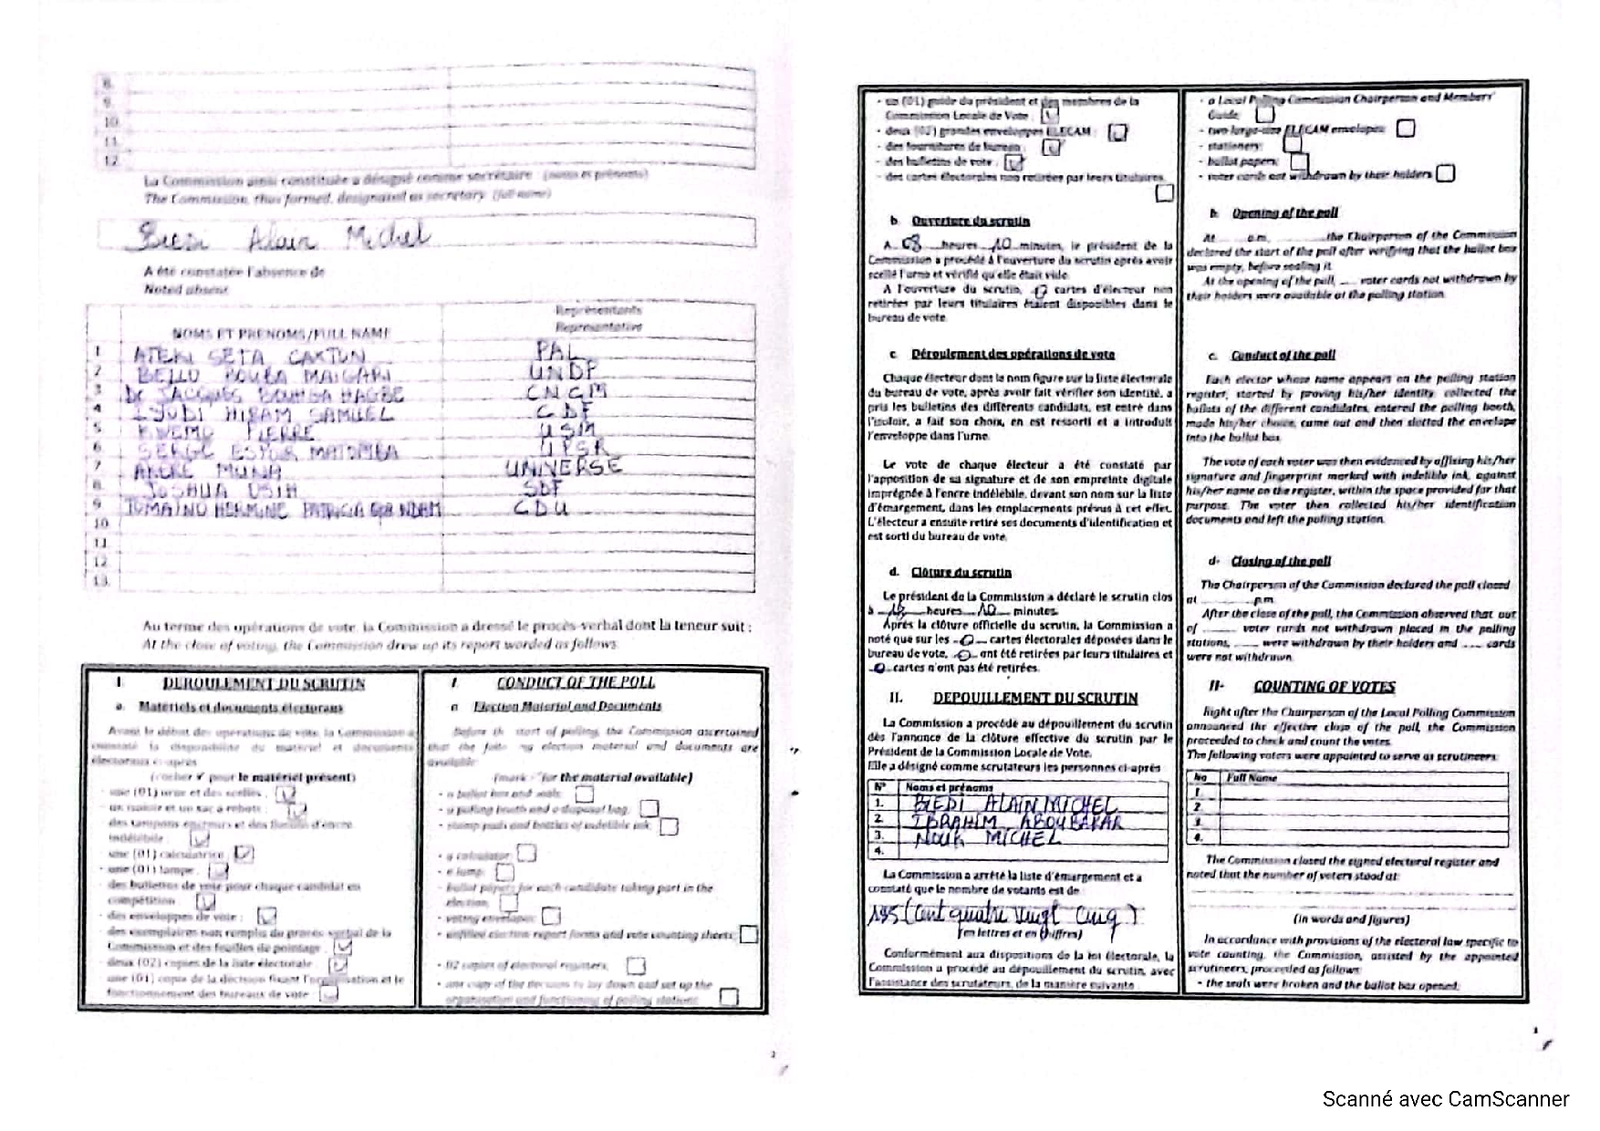 8.
9.
10.
11.
12.
La Commission ainsi constituée a désigné comme secrétaire (noms et prénoms)
The Commission, thus formed, designated as secretary (full name)
Biedi Alain Michel
A été constatée l'absence de
Noted absent
NOMS ET PRENOMS/FULL NAME
Représentants
Representative
1 ATEKI SETA CAXTON PAL
2 BELLO BOUBA MAIGARI UNDP
3 Dr JACQUES BOUMBA HAGBE CNCM
4 IYODI HIRAM SAMUEL CDF
5 KWEMO PIERRE USM
6 SERGE ESPOIR MATOMBA UPSR
7 ANDRE MUNA UNIVERSE
8. JOSHUA OSIH SDF
9 TOMAINO HERMINE PATRICIA NDAM CDU
10
11
12
13.
Au terme des opérations de vote, la Commission a dressé le procès-verbal dont la teneur suit :
At the close of voting, the Commission drew up its report worded as follows
I. DEROULEMENT DU SCRUTIN
a. Matériels et documents électoraux
Avant le début des opérations de vote, la Commission a
constaté la disponibilité du matériel et documents
électoraux ci-après
(cocher ✔ pour le matériel présent)
- une (01) urne et des scellés :
- un isoloir et un sac à rebuts :
- des tampons encreurs et des flacons d'encre
indélébile :
- une (01) calculatrice :
- une (01) lampe :
- des bulletins de vote pour chaque candidat en
compétition :
- des enveloppes de vote :
- des exemplaires non remplis du procès verbal de la
Commission et des feuilles de pointage :
- deux (02) copies de la liste électorale :
- une (01) copie de la décision fixant l'organisation et le
fonctionnement des bureaux de vote :
I. CONDUCT OF THE POLL
a Election Material and Documents
Before the start of polling, the Commission ascertained
that the following election material and documents are
available
(mark for the material available)
- a ballot box and seals:
- a polling booth and a disposal bag:
- stamp pads and bottles of indelible ink:
- a calculator:
- a lamp:
- ballot papers for each candidate taking part in the
election:
- voting envelopes:
- unfilled election report forms and vote counting sheets:
- 02 copies of electoral registers:
- one copy of the decision to lay down and set up the
organisation and functioning of polling stations:
2
- un (01) guide du président et des membres de la
Commission Locale de Vote :
- deux (02) grandes enveloppes ELECAM :
- des fournitures de bureau :
- des bulletins de vote :
- des cartes électorales non retirées par leurs titulaires.
b Ouverture du scrutin
A 08 heures 10 minutes, le président de la
Commission a procédé à l'ouverture du scrutin après avoir
scellé l'urne et vérifié qu'elle était vide.
A l'ouverture du scrutin, 0 cartes d'électeur non
retirées par leurs titulaires étaient disponibles dans le
bureau de vote
c Déroulement des opérations de vote
Chaque électeur dont le nom figure sur la liste électorale
du bureau de vote, après avoir fait vérifier son identité, a
pris les bulletins des différents candidats, est entré dans
l'isoloir, a fait son choix, en est ressorti et a introduit
l'enveloppe dans l'urne.
Le vote de chaque électeur a été constaté par
l'apposition de sa signature et de son empreinte digitale
imprégnée à l'encre indélébile, devant son nom sur la liste
d'émargement, dans les emplacements prévus à cet effet.
L'électeur a ensuite retiré ses documents d'identification et
est sorti du bureau de vote.
d. Clôture du scrutin
Le président de la Commission a déclaré le scrutin clos
à 18 heures 10 minutes
Après la clôture officielle du scrutin, la Commission a
noté que sur les 0 cartes électorales déposées dans le
bureau de vote, 0 ont été retirées par leurs titulaires et
0 cartes n'ont pas été retirées.
II. DEPOUILLEMENT DU SCRUTIN
La Commission a procédé au dépouillement du scrutin
dès l'annonce de la clôture effective du scrutin par le
Président de la Commission Locale de Vote.
Elle a désigné comme scrutateurs les personnes ci-après
N° Noms et prénoms
1. BIEDI ALAIN MICHEL
2. IBRAHIM ABOUBAKAR
3. NOUK MICHEL
4.
La Commission a arrêté la liste d'émargement et a
constaté que le nombre de votants est de
185 (cent quatre vingt cinq)
(en lettres et en chiffres)
Conformément aux dispositions de la loi électorale, la
Commission a procédé au dépouillement du scrutin, avec
l'assistance des scrutateurs, de la manière suivante
- a Local Polling Commission Chairperson and Members'
Guide:
- two large-size ELECAM envelopes:
- stationery:
- ballot papers:
- voter cards not withdrawn by their holders
b. Opening of the poll
At a.m, the Chairperson of the Commission
declared the start of the poll after verifying that the ballot box
was empty, before sealing it.
At the opening of the poll, voter cards not withdrawn by
their holders were available at the polling station.
c. Conduct of the poll
Each elector whose name appears on the polling station
register, started by proving his/her identity collected the
ballots of the different candidates, entered the polling booth,
made his/her choice, came out and then slotted the envelope
into the ballot box.
The vote of each voter was then evidenced by affixing his/her
signature and fingerprint marked with indelible ink, against
his/her name on the register, within the space provided for that
purpose. The voter then collected his/her identification
documents and left the polling station.
d- Closing of the poll
The Chairperson of the Commission declared the poll closed
at p.m.
After the close of the poll, the Commission observed that out
of voter cards not withdrawn placed in the polling
stations, were withdrawn by their holders and cards
were not withdrawn.
II- COUNTING OF VOTES
Right after the Chairperson of the Local Polling Commission
announced the effective close of the poll, the Commission
proceeded to check and count the votes.
The following voters were appointed to serve as scrutineers:
No Full Name
1
2.
3.
4.
The Commission closed the signed electoral register and
noted that the number of voters stood at:
(in words and figures)
In accordance with provisions of the electoral law specific to
vote counting, the Commission, assisted by the appointed
scrutineers, proceeded as follows:
- the seals were broken and the ballot box opened;
Scanné avec CamScanner